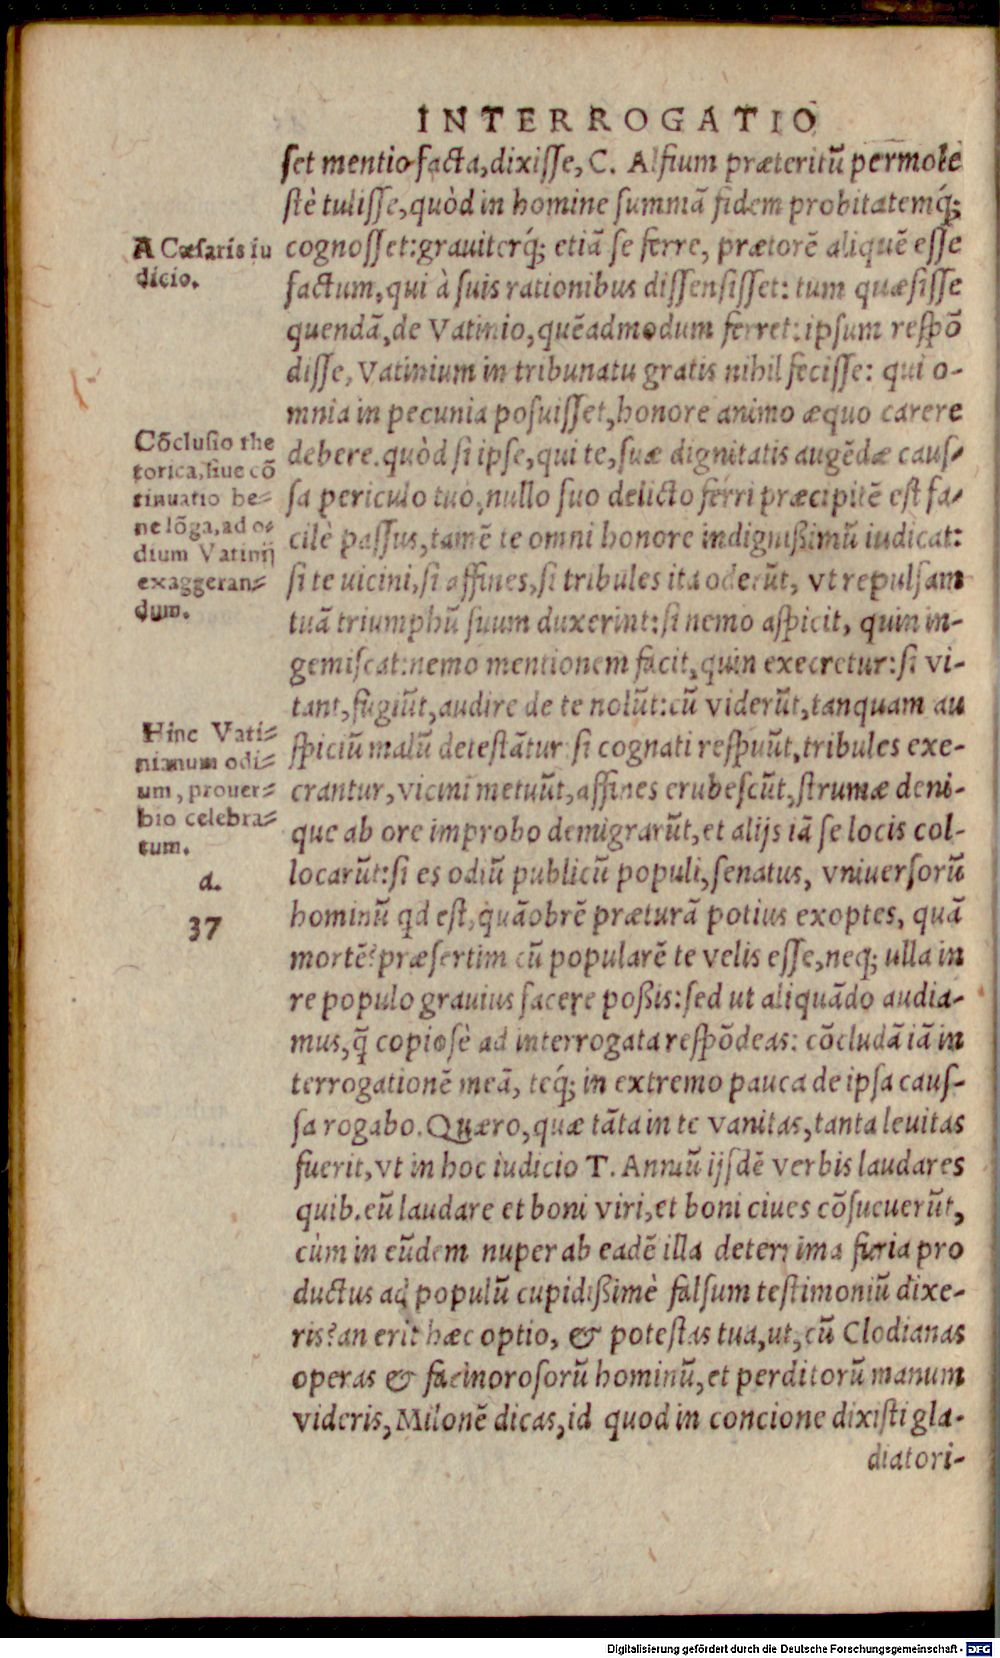 INTERROGATIO
set mentio facta, dixisse, C. Alfium præteritũ permole
stè tulisse, quòd in homine summã fidem probitatemq́;
cognosset: grauiterq́; etiã se ferre, prætorẽ aliquẽ esse
factum, qui à suis rationibus dissensisset: tum quæsisse
quendã, de Vatinio, quẽadmodum ferret: ipsum respõ
disse, Vatinium in tribunatu gratis nihil fecisse: qui o-
mnia in pecunia posuisset, honore animo æquo carere
debere. quòd si ipse, qui te, suæ dignitatis augẽdæ caus-
sa periculo tuo, nullo suo delicto ferri præcipitẽ est fa-
cilè passus, tamẽ te omni honore indignißimũ iudicat:
si te uicini, si affines, si tribules ita oderũt, vt repulsam
tuã triumphũ suum duxerint: si nemo aspicit, quin in-
gemiscat: nemo mentionem facit, quin execretur: si vi-
tant, fugiũt, audire de te nolũt: cũ viderũt, tanquam au
spiciũ malũ detestãtur: si cognati respuũt, tribules exe-
crantur, vicini metuũt, affines erubescũt, strumæ deni-
que ab ore improbo demigrarũt, et alijs iã se locis col-
locarũt: si es odiũ publicũ populi, senatus, vniuersorũ
hominũ qd est, quãobrẽ præturã potius exoptes, quã
mortẽ? præsertim cũ popularẽ te velis esse, neq; ulla in
re populo grauius facere poßis: sed ut aliquãdo audia-
mus, q̃ copiosè ad interrogata respõdeas: cõcludã iã in
terrogationẽ meã, teq́; in extremo pauca de ipsa caus-
sa rogabo. Quæro, quæ tãta in te vanitas, tanta leuitas
fuerit, vt in hoc iudicio T. Anniũ ijsdẽ verbis laudares
quib. eũ laudare et boni viri, et boni ciues cõsueuerũt,
cùm in eũdem nuper ab eadẽ illa deterrima furia pro
ductus ad populũ cupidißimè falsum testimoniũ dixe-
ris? an erit hæc optio, & potestas tua, ut, cũ Clodianas
operas & facinorosorũ hominũ, et perditorũ manum
videris, Milonẽ dicas, id quod in concione dixisti gla-
diatori-
A Cæsaris iu
dicio.
Cõclusio rhe
torica, siue cõ
tinuatio be-
ne lõga, ad o-
dium Vatinij
exaggeran-
dum.
Hinc Vati-
nianum odi-
um, prouer-
bio celebra-
tum.
d.
37
Digitalisierung gefördert durch die Deutsche Forschungsgemeinschaft - DFG